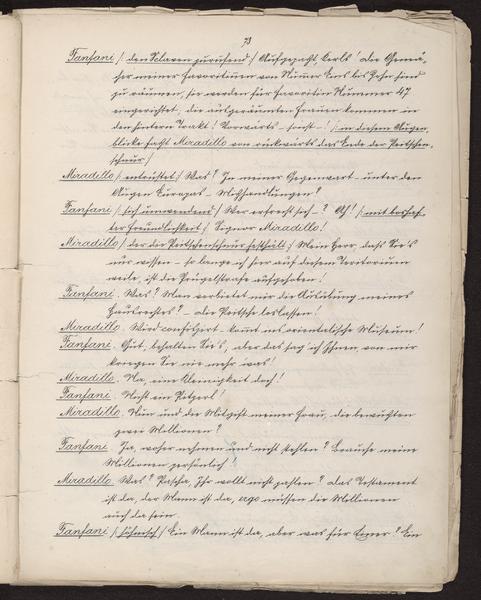 73
Fanfani /: den Sclaven zurufend :/ Aufgepaßt, Kerls! die Gemä-
cher meiner Favoritinen von Numer Eins bis Zehn sind
zu räumen, sie werden für Favoritin Nummer 47
eingerichtet, die ausgeräumten Frauen kommen in
den hintern Trakt! Vorwärts – sonst –! /: in diesem Augen
blicke faßt Miradillo von rückwärts das Ende der Peitschen-
schnur :/
Miradillo /: entrüstet :/ Was? In meiner Gegenwart – unter den
Augen Europas – Mißhandlungen?
Fanfani /: sich umwendend :/ Wer erfrecht sich –? Ah! /: mit boshaf-
ter Freundlichkeit :/ Signor Miradillo!
Miradillo /: der die Peitschenschnur festhält :/ Mein Herr, dass Sie's
nur wissen – so lange ich hier auf diesem Teritorium
weile, ist die Prügelstrafe aufgehoben!
Fanfani. Was? Man verbietet mir die Ausübung meines
Hausrechtes? – die Peitsche loslassen!
Miradillo. Wird confiszirt – kommt ins orientalische Museum!
Fanfani. Gut, behalten Sie's, aber das sag' ich Ihnen, von mir
kriegen Sie nie mehr was!
Miradillo. Na, eine Kleinigkeit doch!
Fanfani. Nicht ein Sitzerl!
Miradillo. Nun und die Mitgift meiner Frau, die bewußten
zwei Millionen?
Fanfani. Ja, woher nehmen und nicht stehlen? Brauche meine
Millionen persönlich!
Miradillo. Was? Pascha, Ihr wollt nicht zahlen? das Testament
ist da, der Mann ist da, ergo müssen die Millionen
auch da sein.
Fanfani /: höhnisch :/ Ein Mann ist da, aber was für Einer? Ein